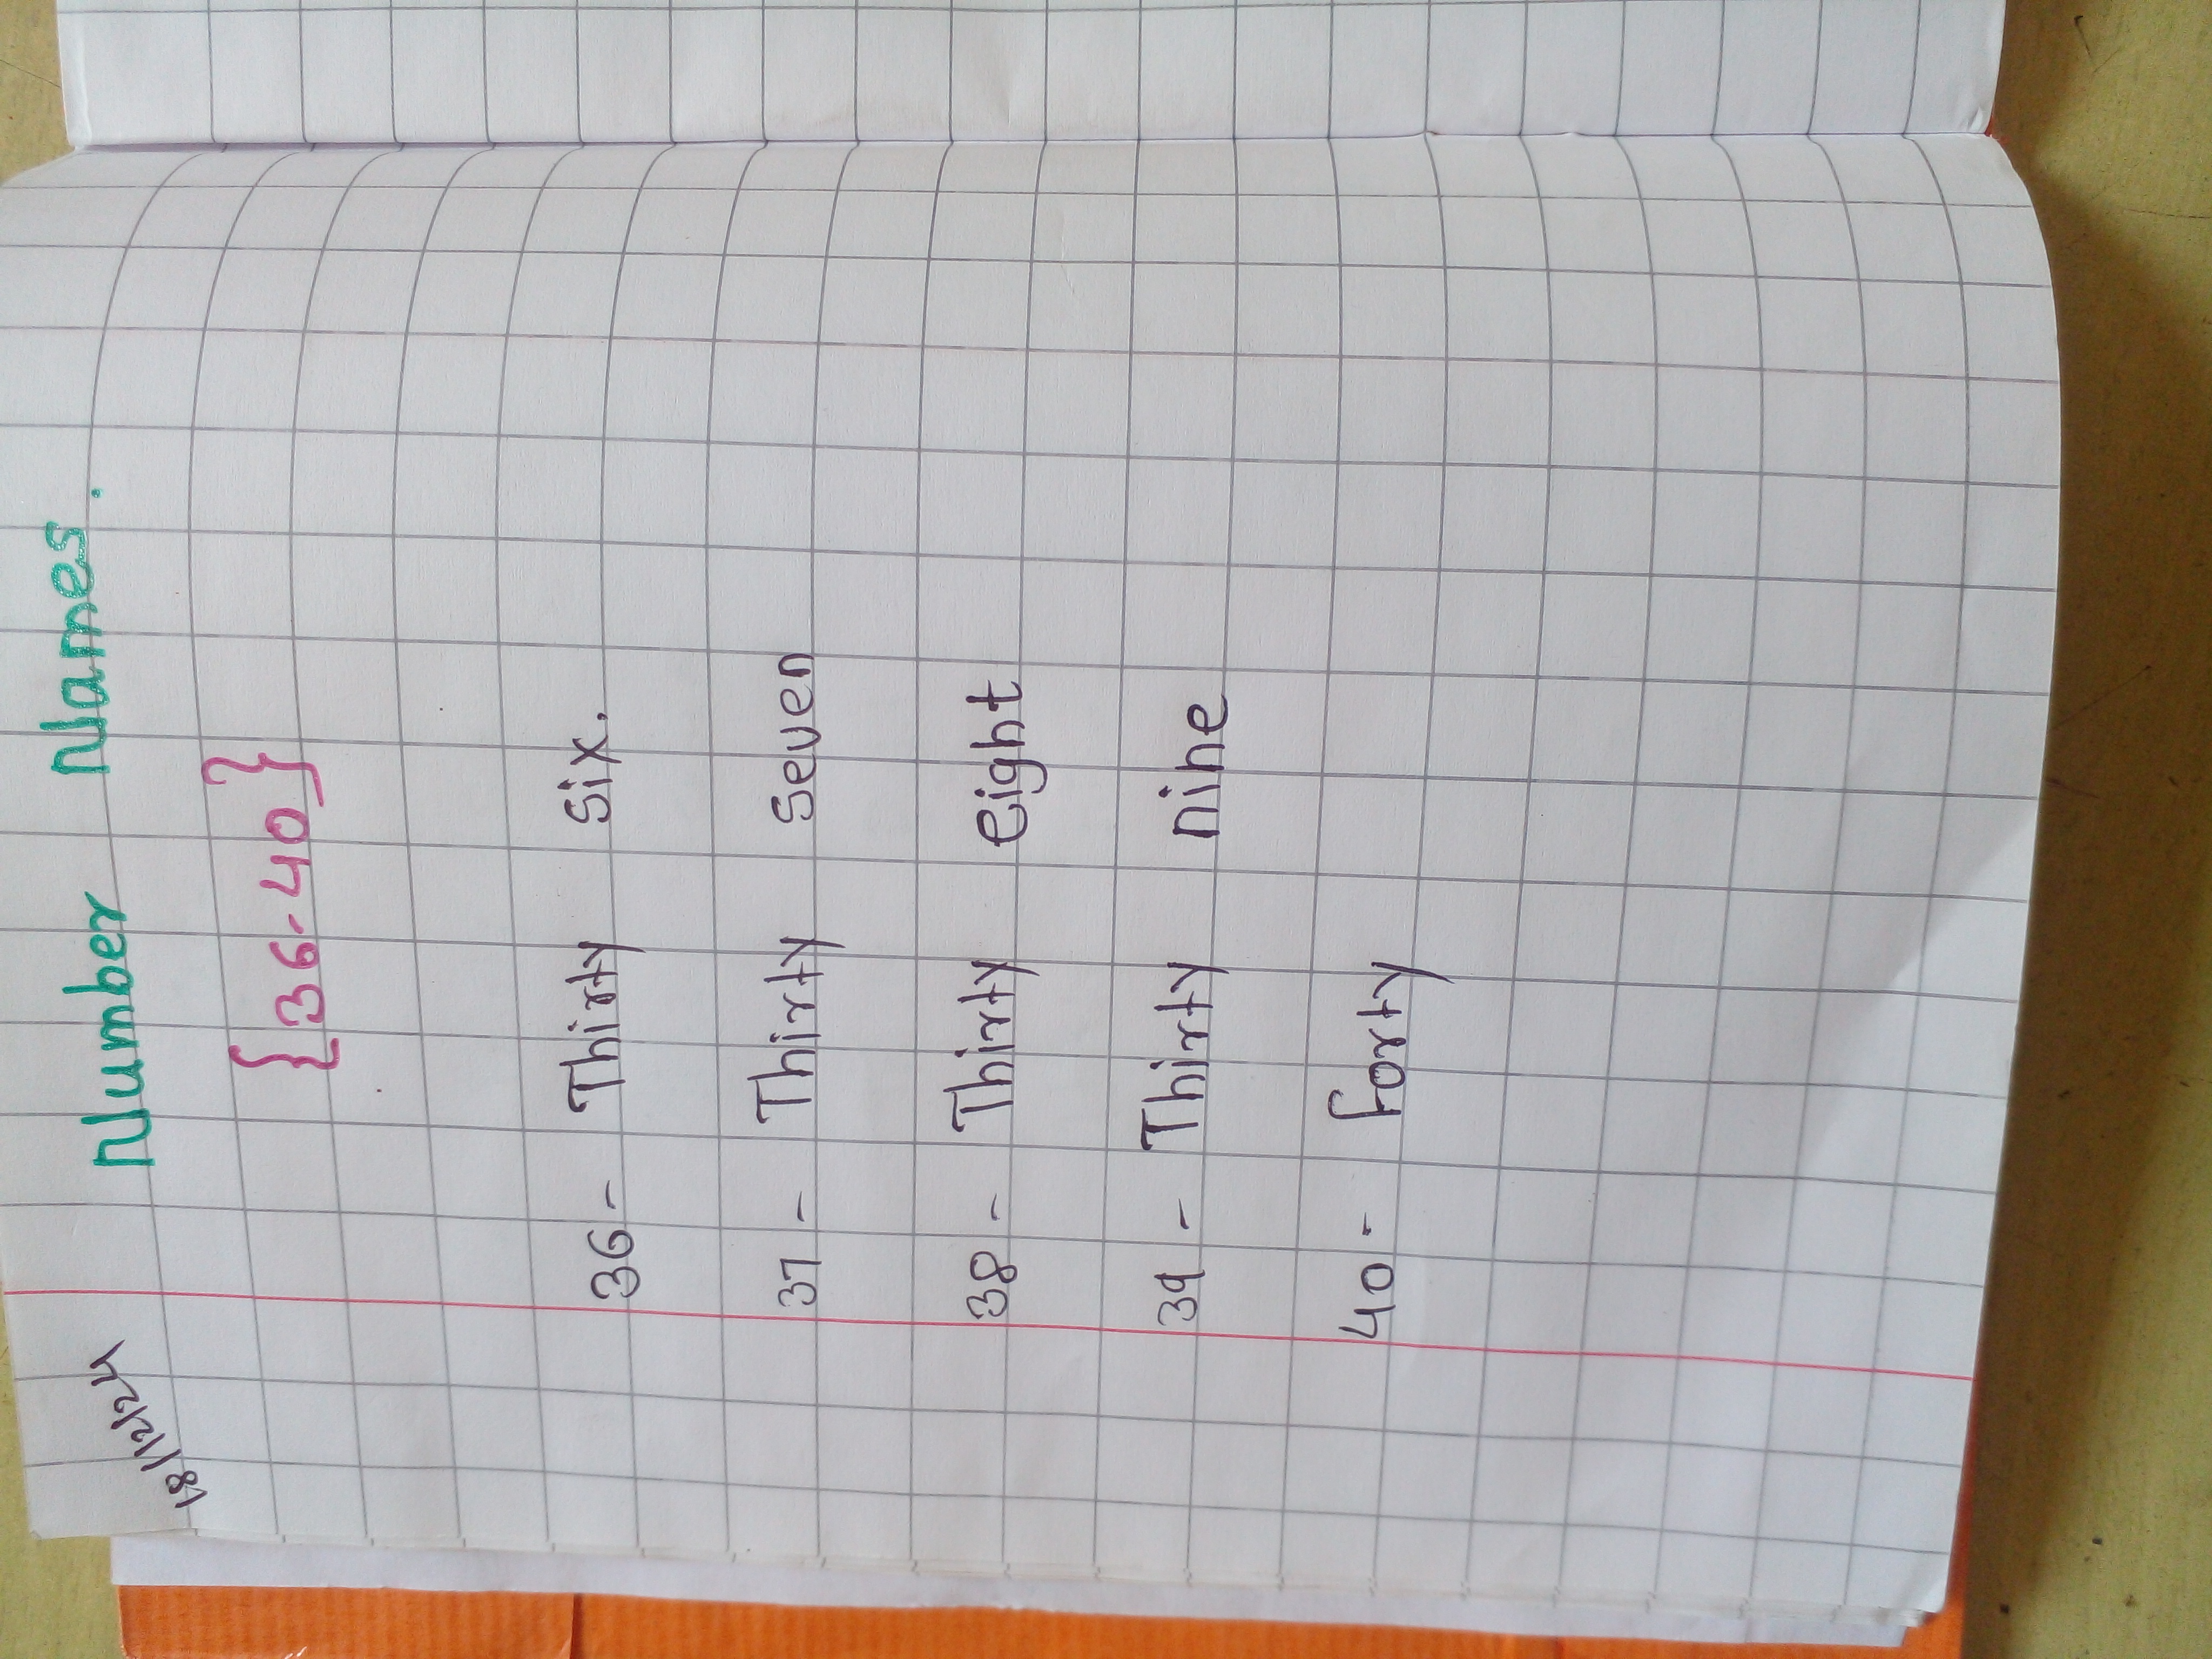 18/12/24
Number Names.
{36-40}
36- Thirty Six.
37- Thirty Seven
38- Thirty eight
39- Thirty nine
40- Forty